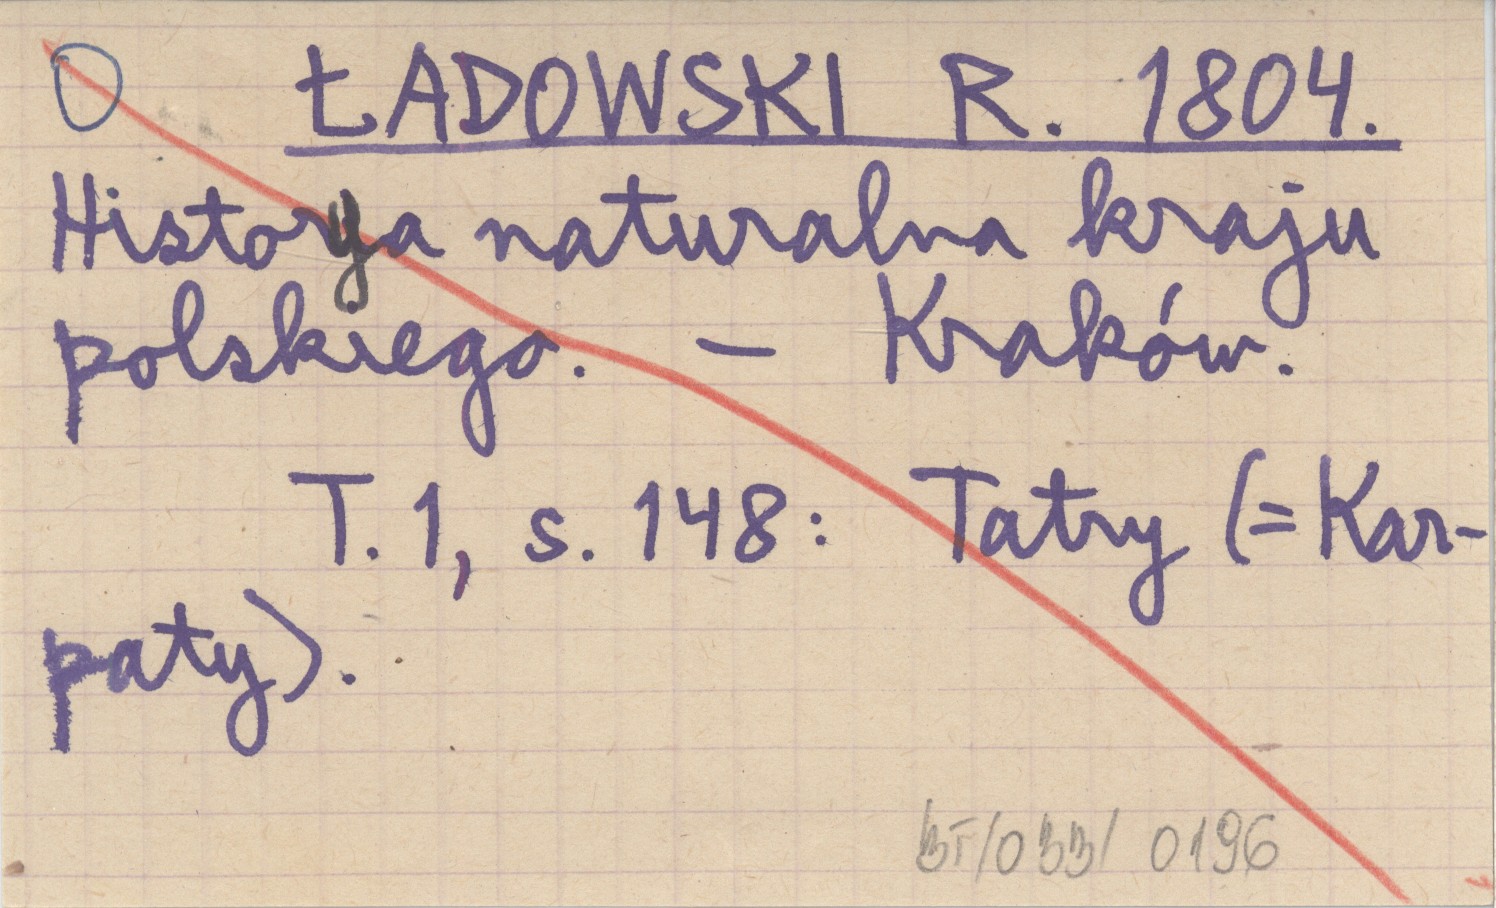 ŁADOWSKI R. 1804.
Historya naturalna kraju
polskiego. — Kraków.
T. 1, s. 148: Tatry (= Kar-
paty).
BT/033/ 0196